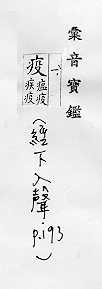 彙音寶鑑
疫
瘟疫
疾疫
(經下入聲. p.193)